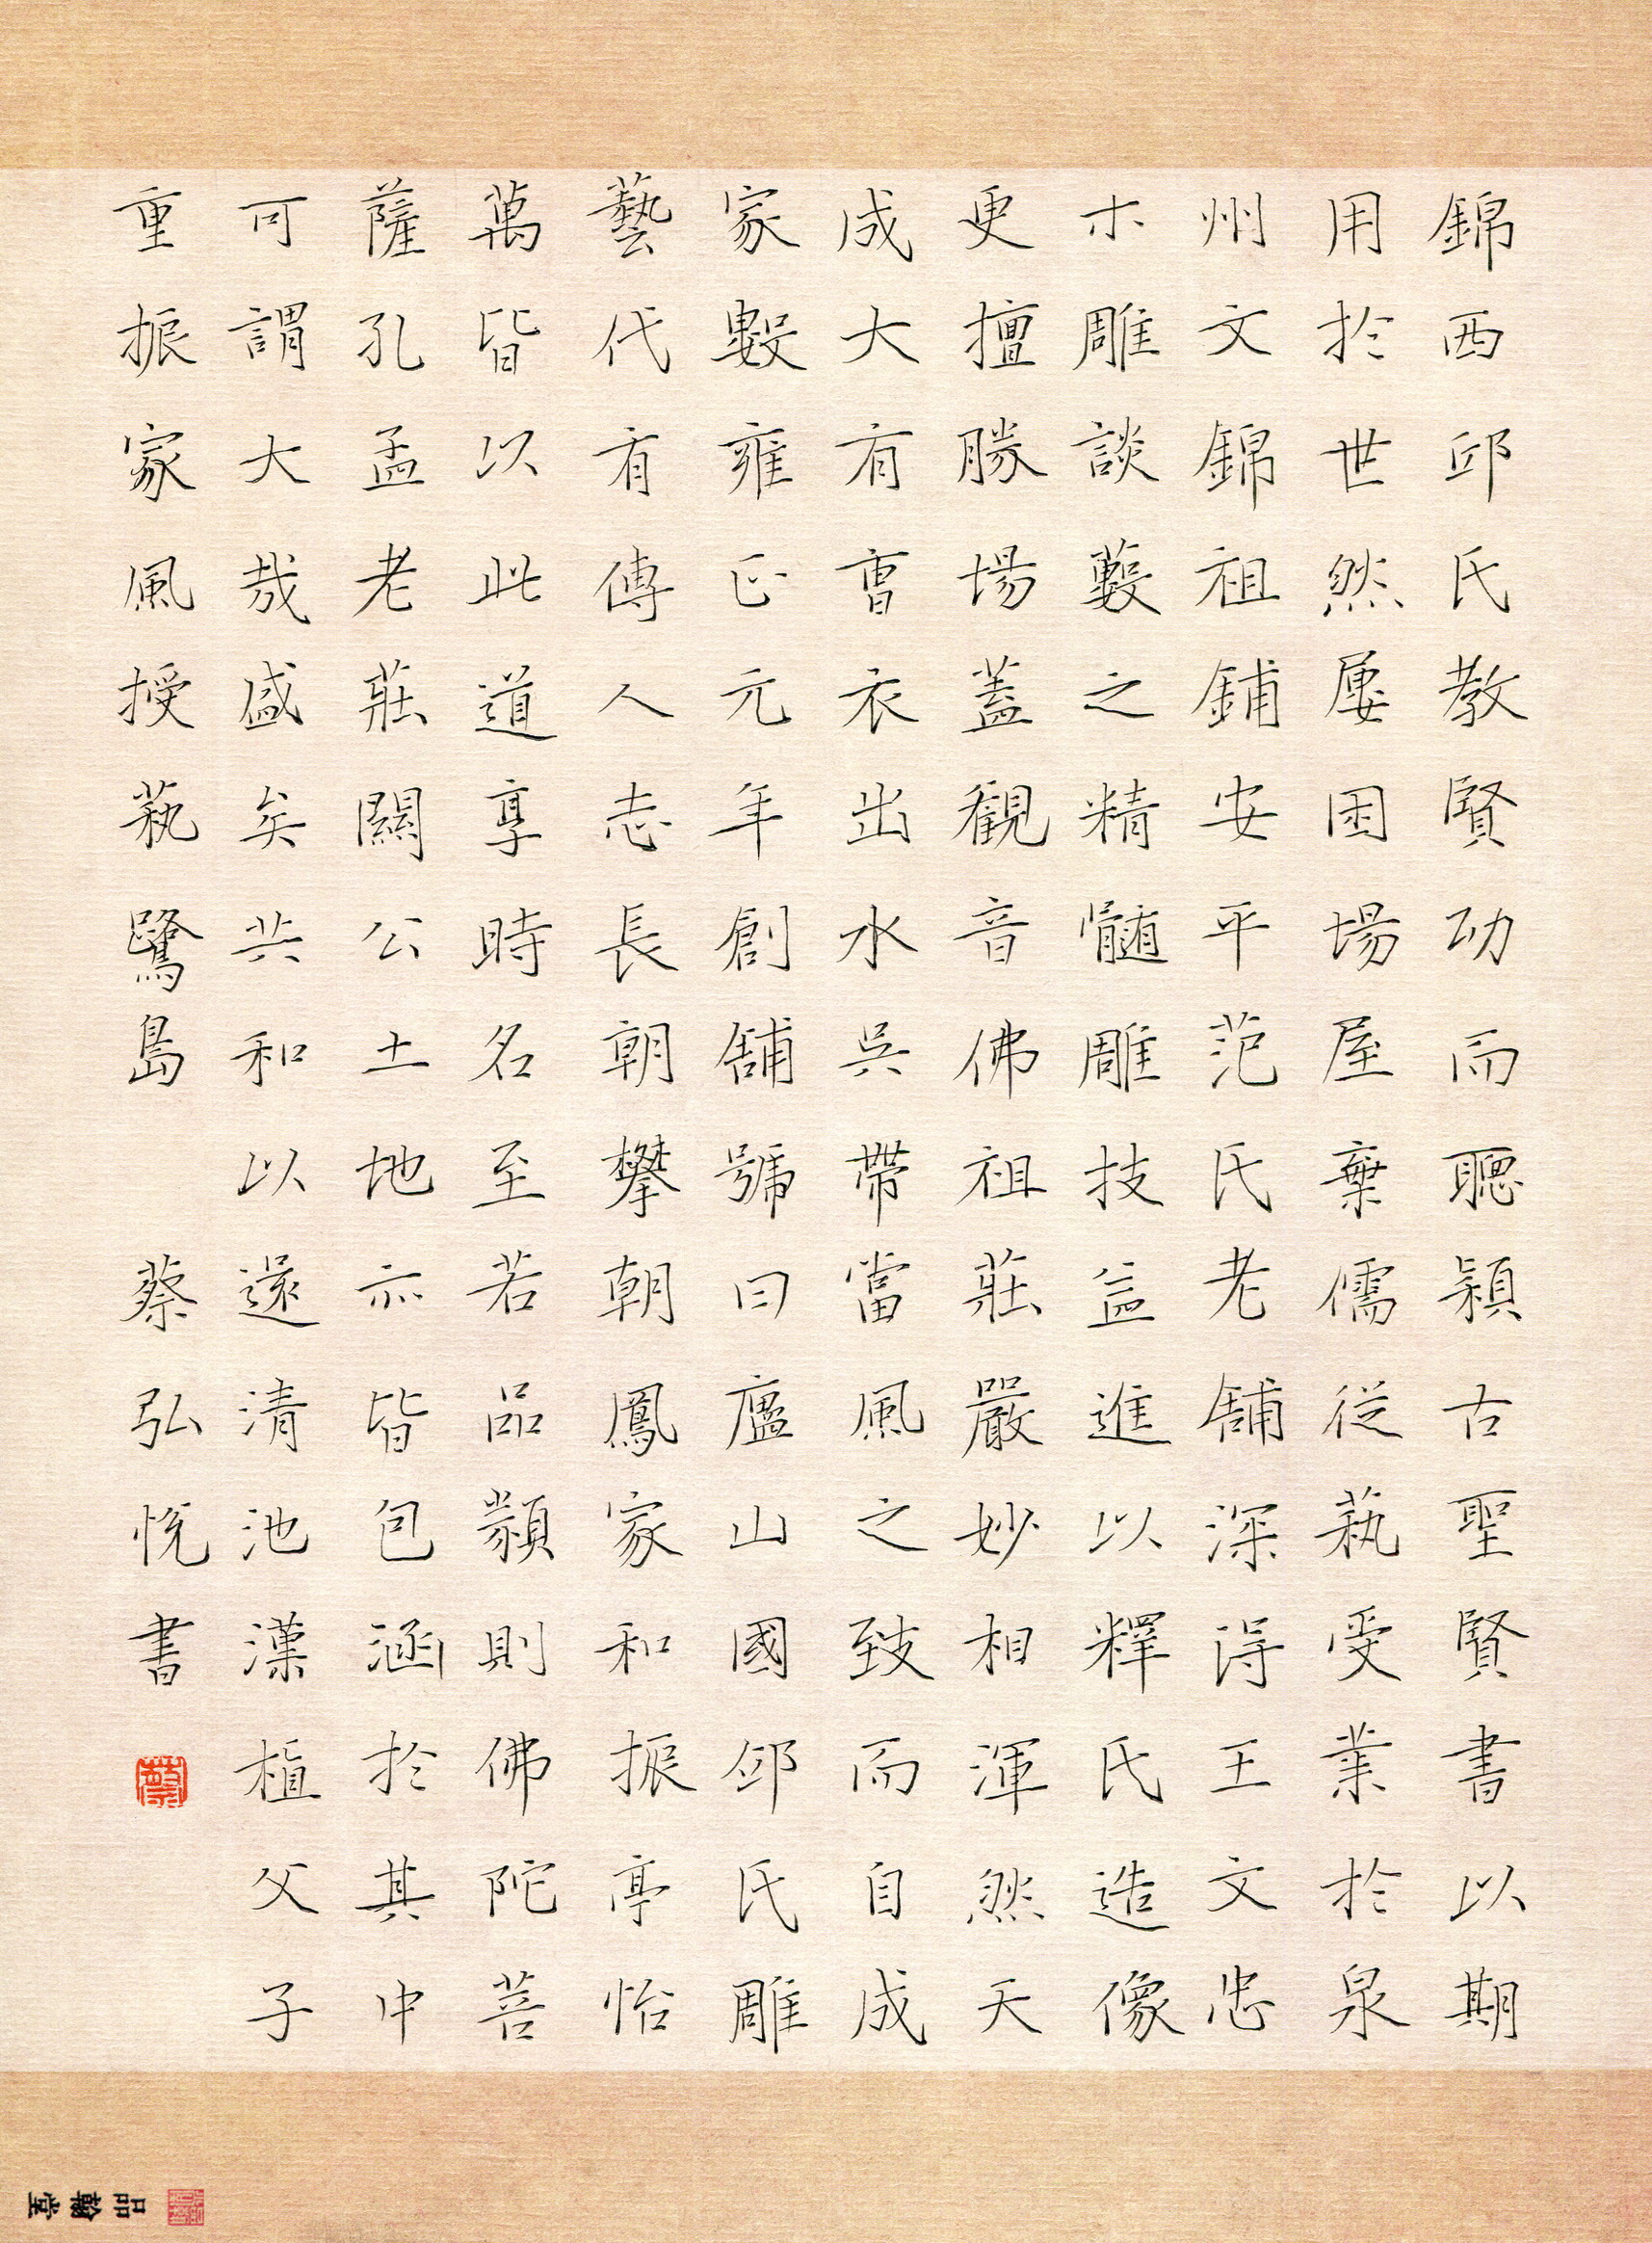 錦西邱氏教賢功而聰穎古聖賢書以期
用於世然屢困場屋棄儒從蓺受業於泉
州文錦祖鋪安平范氏老舖深得王文忠
木雕談藪之精髓雕技益進以釋氏造像
更擅勝場蓋觀音佛祖莊嚴妙相渾然天
成大有曹衣出水吳帶當風之致而自成
家數雍正元年創舖號曰廬山國邱氏雕
藝代有傳人志長朝攀朝鳳家和振亭怡
萬皆以此道享時名至若品類則佛陀菩
薩孔孟老莊關公土地亦皆包涵於其中
可謂大哉盛矣共和以還清池漢植父子
重振家風授蓺鷺島
蔡弘悅書
蔡
品翰堂